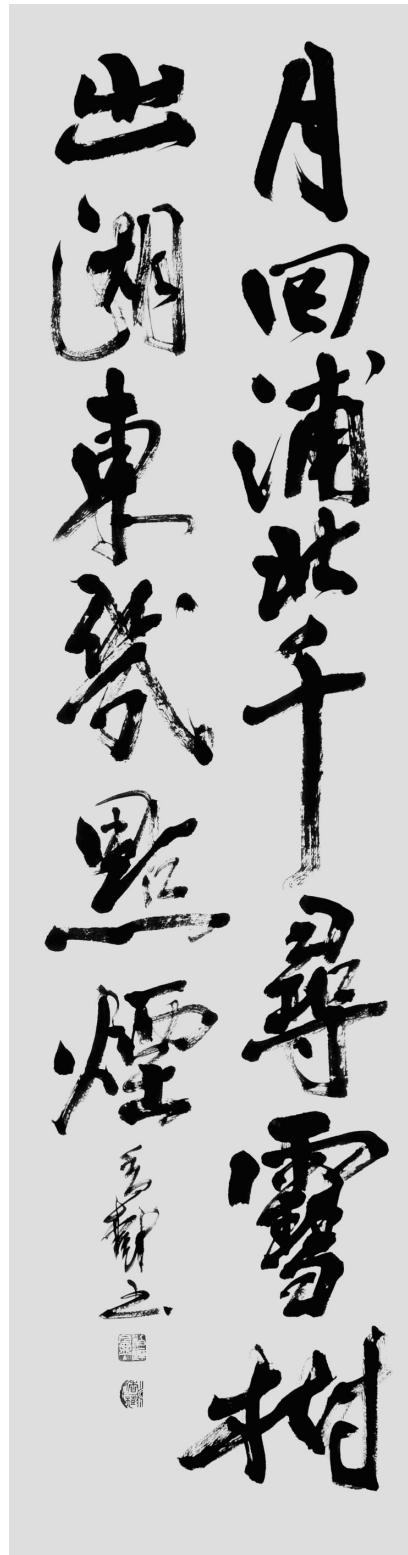 月回浦北千尋雪樹
出湖東幾點煙